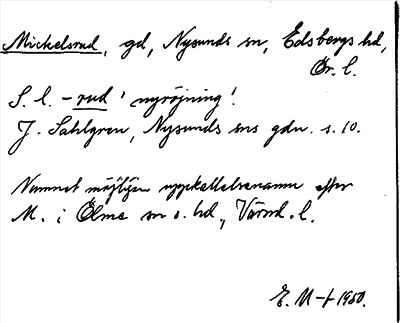 Mickelsrud, gd, Nysunds sn, Edsbergs hd,
Ör. l.
S. l. - rud 'nyröjning'.
J. Sahlgren, Nysunds sns gdn. s. 10.
Namnet möjligen uppkallelsenamn efter
M. i Ölme sn o. hd, Värml. l.
E. M-f 1950.